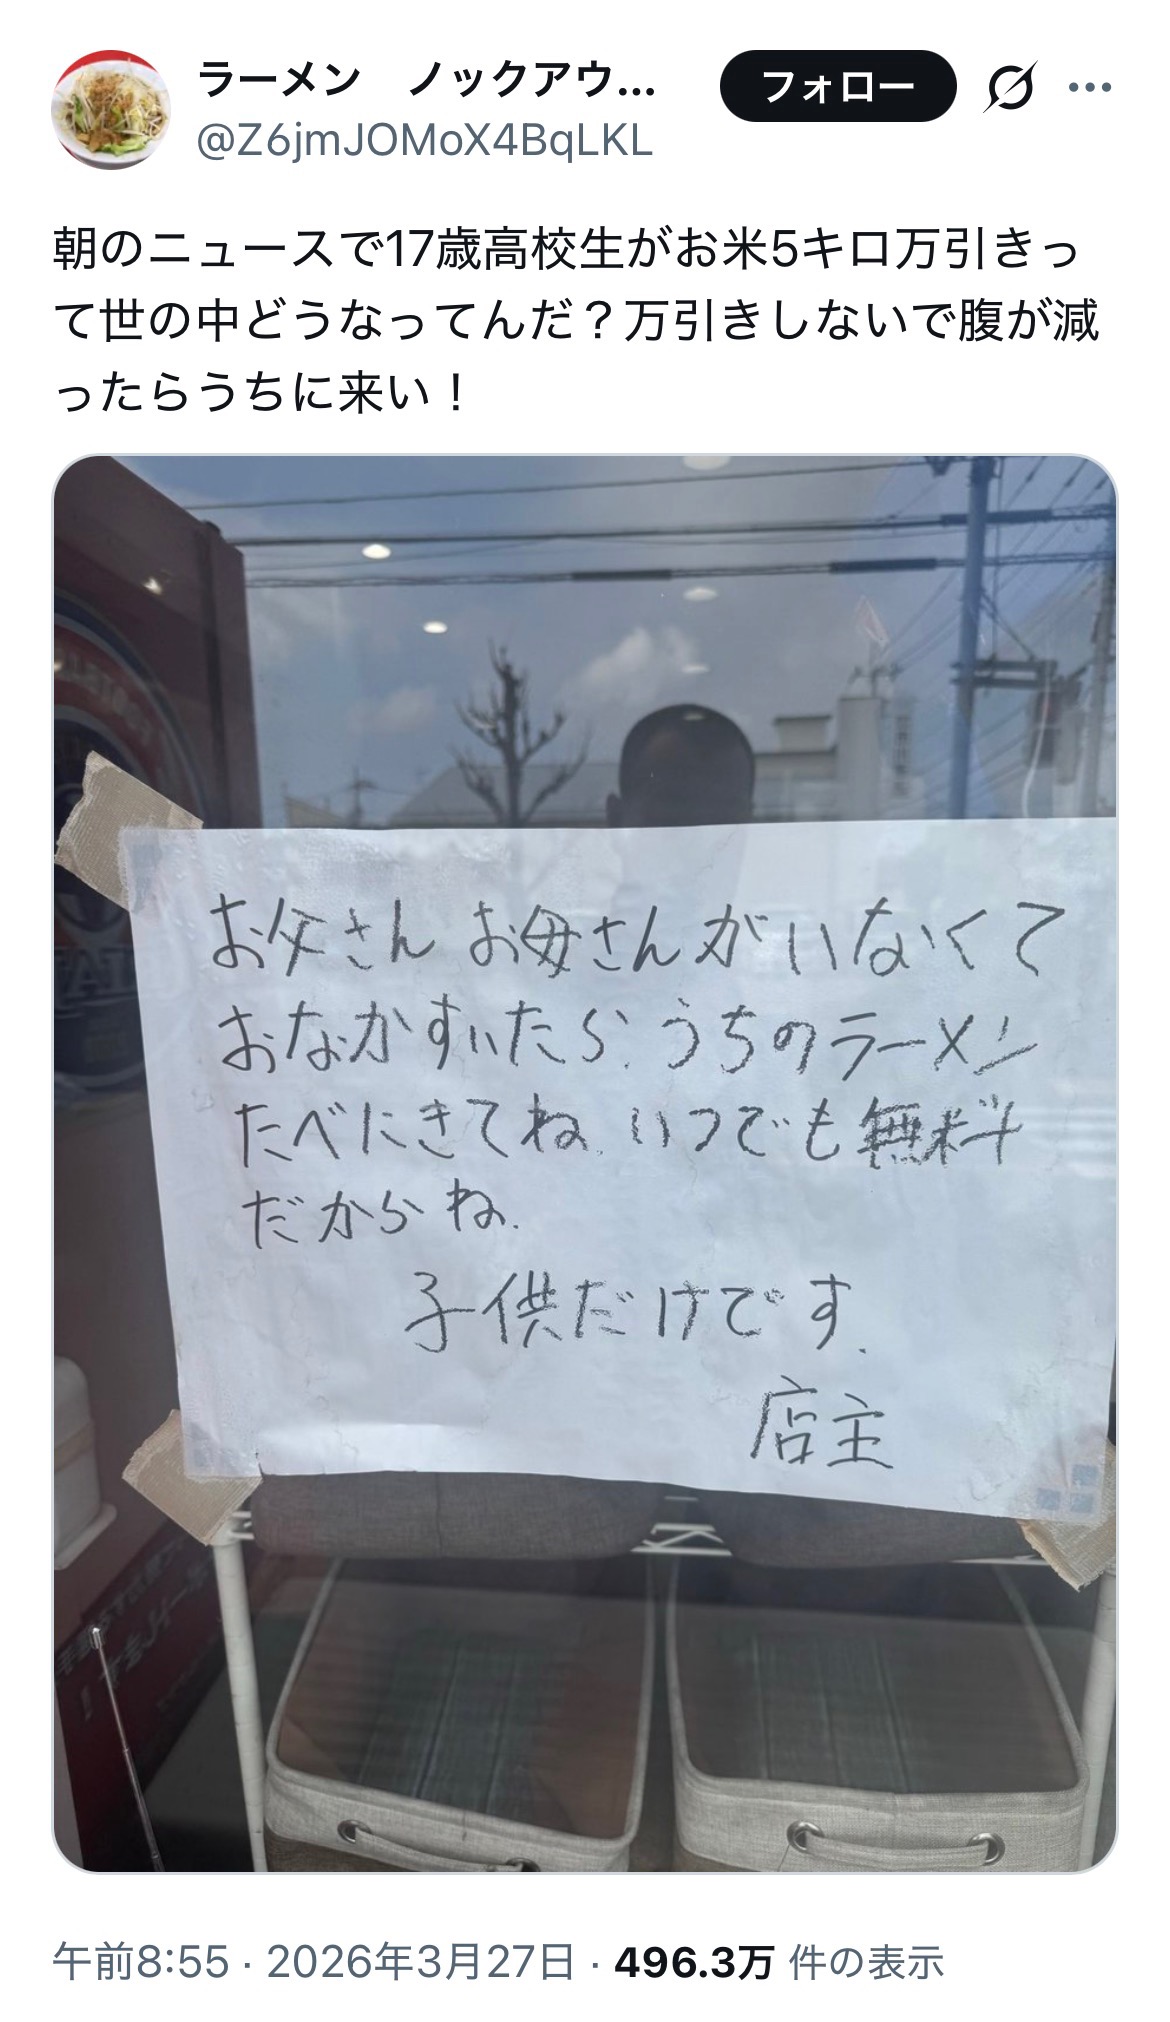 ラーメン　ノックアウ...
フォロー
@Z6jmJOMoX4BqLKL
朝のニュースで17歳高校生がお米5キロ万引きっ
て世の中どうなってんだ？万引きしないで腹が減
ったらうちに来い！
お父さん お母さんがいなくて
おなかすいたら、うちのラーメン
たべにきてね。いつでも無料
だからね。
子供だけです。
店主
午前8:55 · 2026年3月27日 · 496.3万 件の表示